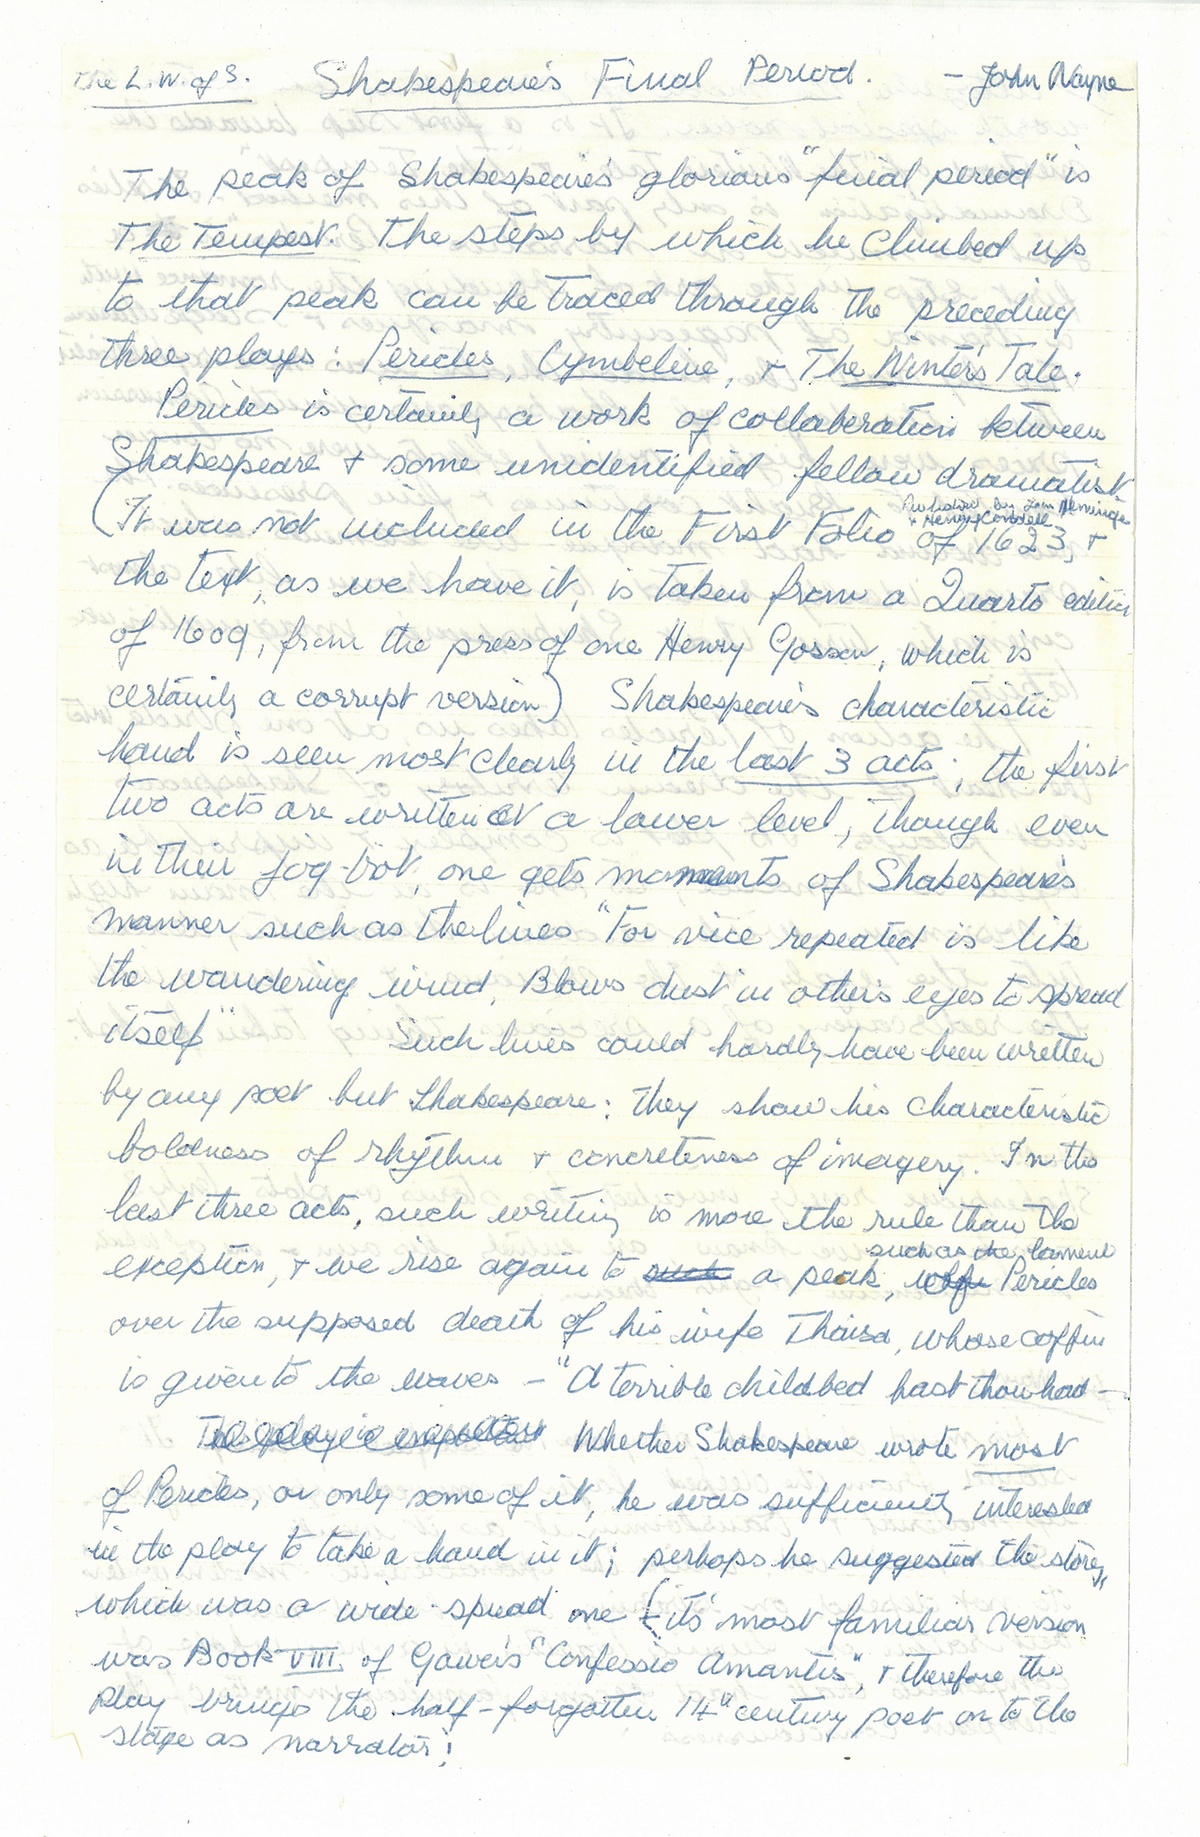 The L.W. of S. Shakespeare's Final Period. - John Wayne
The peak of Shakespeare's glorious "final period" is
The Tempest. The steps by which he climbed up
to that peak can be traced through the preceding
three plays: Pericles, Cymbeline, + The Winter's Tale.
Pericles is certainly a work of collaberation between
Shakespeare + some unidentified fellow dramatist
Published by John Heminge
+ Henry Condell
(It was not included in the First Folio of 1623, +
the text, as we have it, is taken from a Quarto edition
of 1609, from the press of one Henry Gosson, which is
certainly a corrupt version) Shakespeare's characteristic
hand is seen most clearly in the last 3 acts; the first
two acts are written at a lower level, though even
in their jog-trot, one gets moments of Shakespeare's
manner such as the lines "For vice repeated is like
the wandering wind, Blows dust in other's eyes to spread
itself" Such lines could hardly have been written
by any poet but Shakespeare: they show his characteristic
boldness of rhythm + concreteness of imagery. In the
last three acts, such writing is more the rule than the
such as the lament
exception, + we rise again to such a peak, Pericles
over the supposed death of his wife Thaisa, whose coffin
is given to the waves - "A terrible childbed hast thou had -
The play is important Whether Shakespeare wrote most
of Pericles, or only some of it, he was sufficiently interested
in the play to take a hand in it; perhaps he suggested the story,
which was a wide-spread one (its most familiar version
was Book VIII of Gower's "Confessio Amantis", + therefore the
play brings the half-forgotten 14th century poet on to the
stage as narrator!